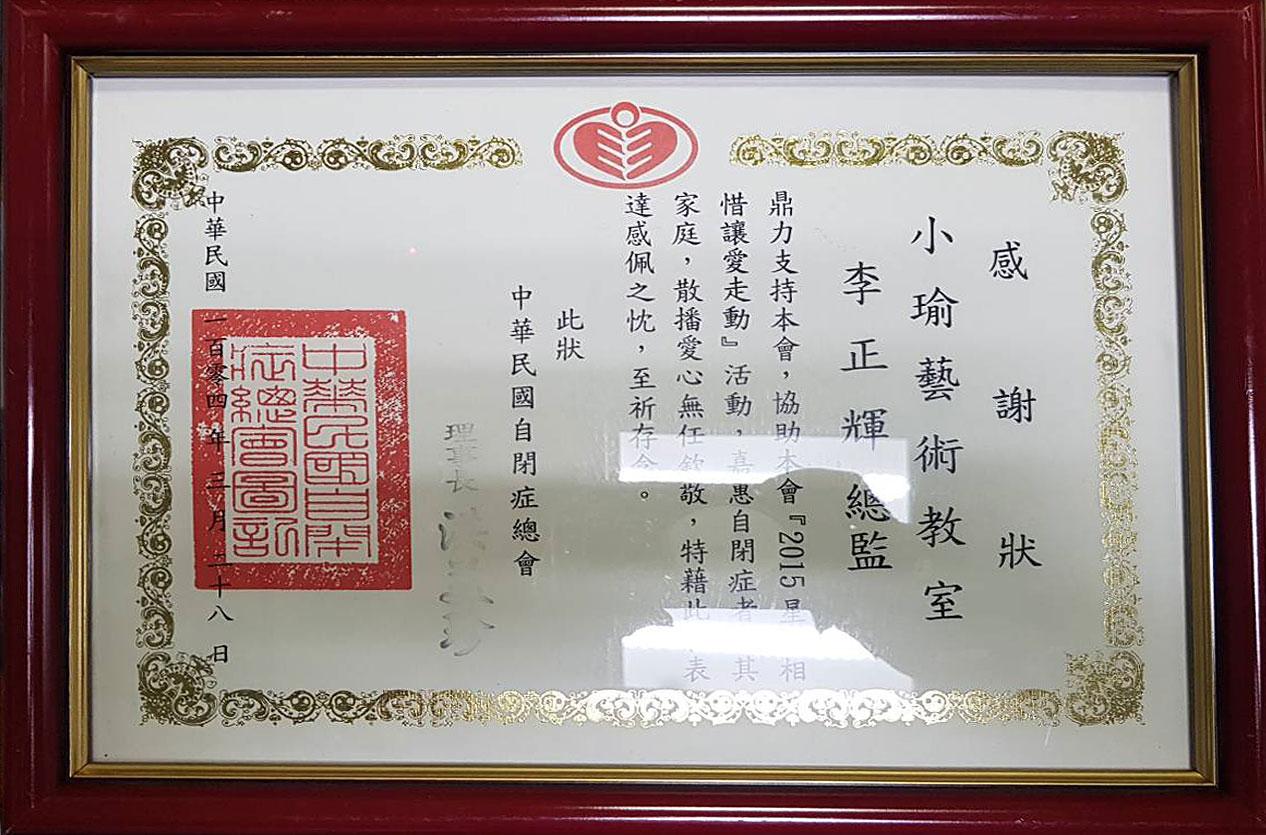 感謝狀
小瑜藝術教室
李正輝總監
鼎力支持本會，協助本會『2015星相
惜讓愛走動』活動，嘉惠自閉症者其
家庭，散播愛心無任欽敬，特藉此表
達感佩之忱，至祈存念。
此狀
中華民國自閉症總會
理事長
中華民國自閉
症總會圖記
中華民國一百零四年三月二十八日